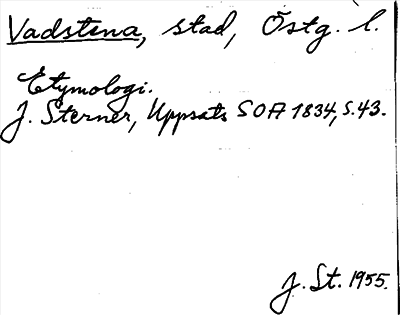 Vadstena, stad, Östg. l.
Etymologi.
J. Sterner, Uppsats SOA 1834, s.43.
J. St. 1955.